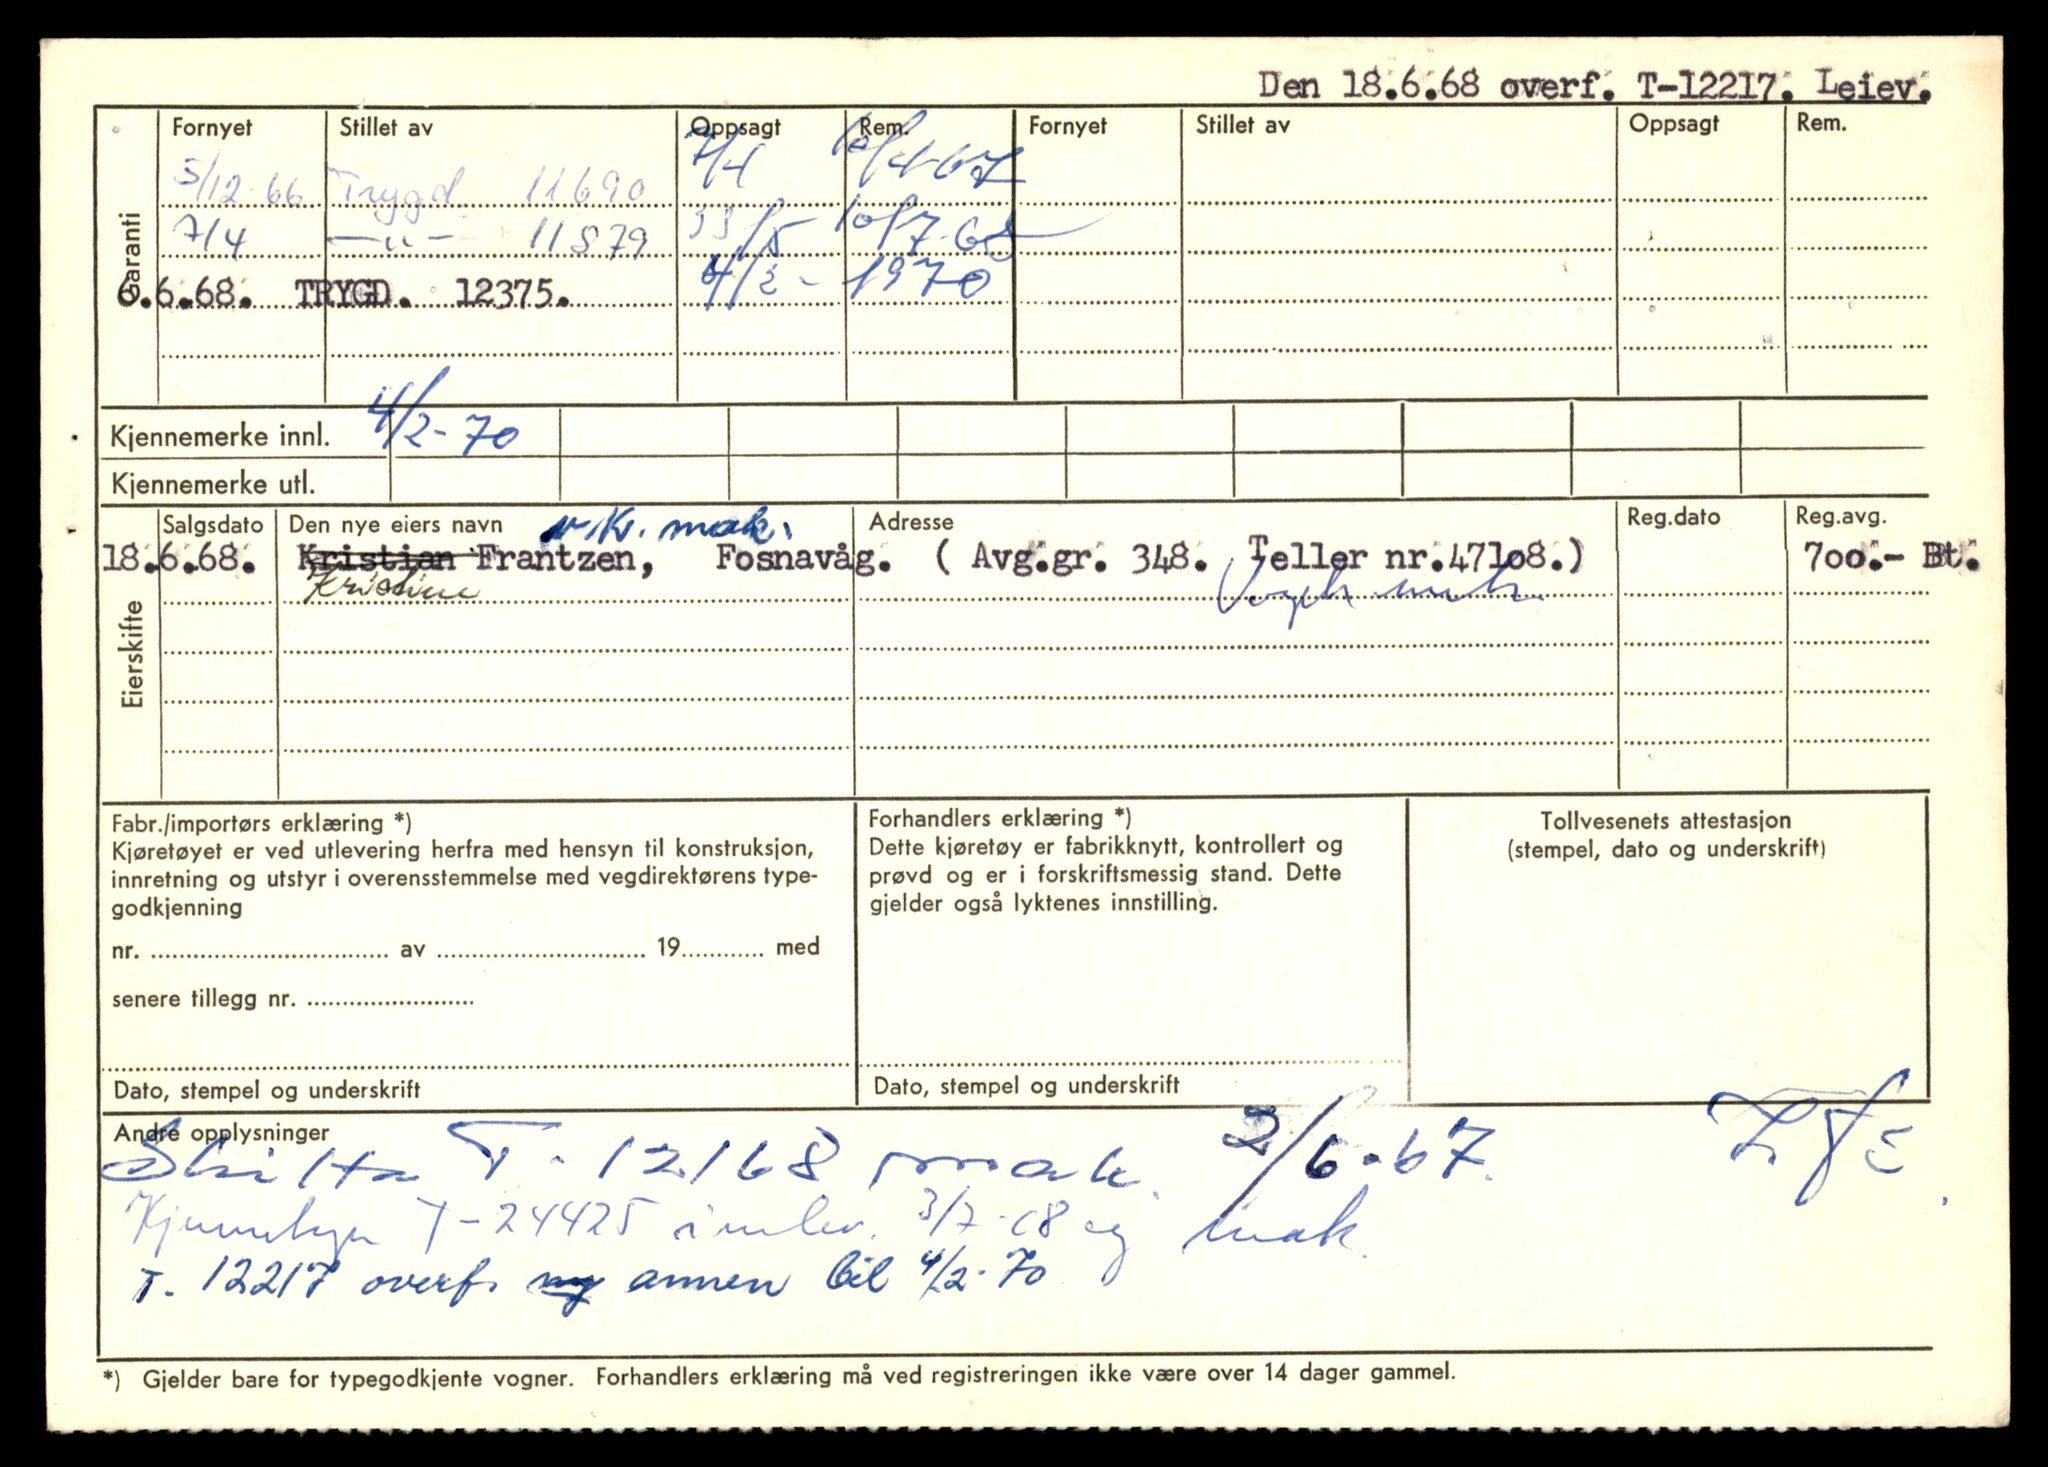 Den 18.6.68 overf. T-12217. Leiev.
Garanti
Fornyet Stillet av Oppsagt Rem. Fornyet Stillet av Oppsagt Rem.
5/12-66 Trygd 11690 7/4 10/4-67
7/4 —"— 11879 /5 10/7-68
6.6.68. TRYGD. 12375. 4/2- 1970
Kjennemerke innl. 4/2-70
Kjennemerke utl.
Eierskifte
Salgsdato Den nye eiers navn v.kr. mak. Adresse Reg.dato Reg.avg.
18.6.68. Kristian Frantzen, Fosnavåg. ( Avg.gr. 348. Teller nr.47108.) 700.- Bt.
Kristine
Fabr./importørs erklæring *)
Kjøretøyet er ved utlevering herfra med hensyn til konstruksjon,
innretning og utstyr i overensstemmelse med vegdirektørens type-
godkjenning
nr. .................... av .................... 19.......... med
senere tillegg nr. ....................
Dato, stempel og underskrift
Forhandlers erklæring *)
Dette kjøretøy er fabrikknytt, kontrollert og
prøvd og er i forskriftsmessig stand. Dette
gjelder også lyktenes innstilling.
Dato, stempel og underskrift
Tollvesenets attestasjon
(stempel, dato og underskrift)
Andre opplysninger
Skilta T-12168 mak. 2/6-67.
T-24425 innlev. 3/7-68 og mak.
T. 12217 overf. ny annen bil 4/2-70
*) Gjelder bare for typegodkjente vogner. Forhandlers erklæring må ved registreringen ikke være over 14 dager gammel.